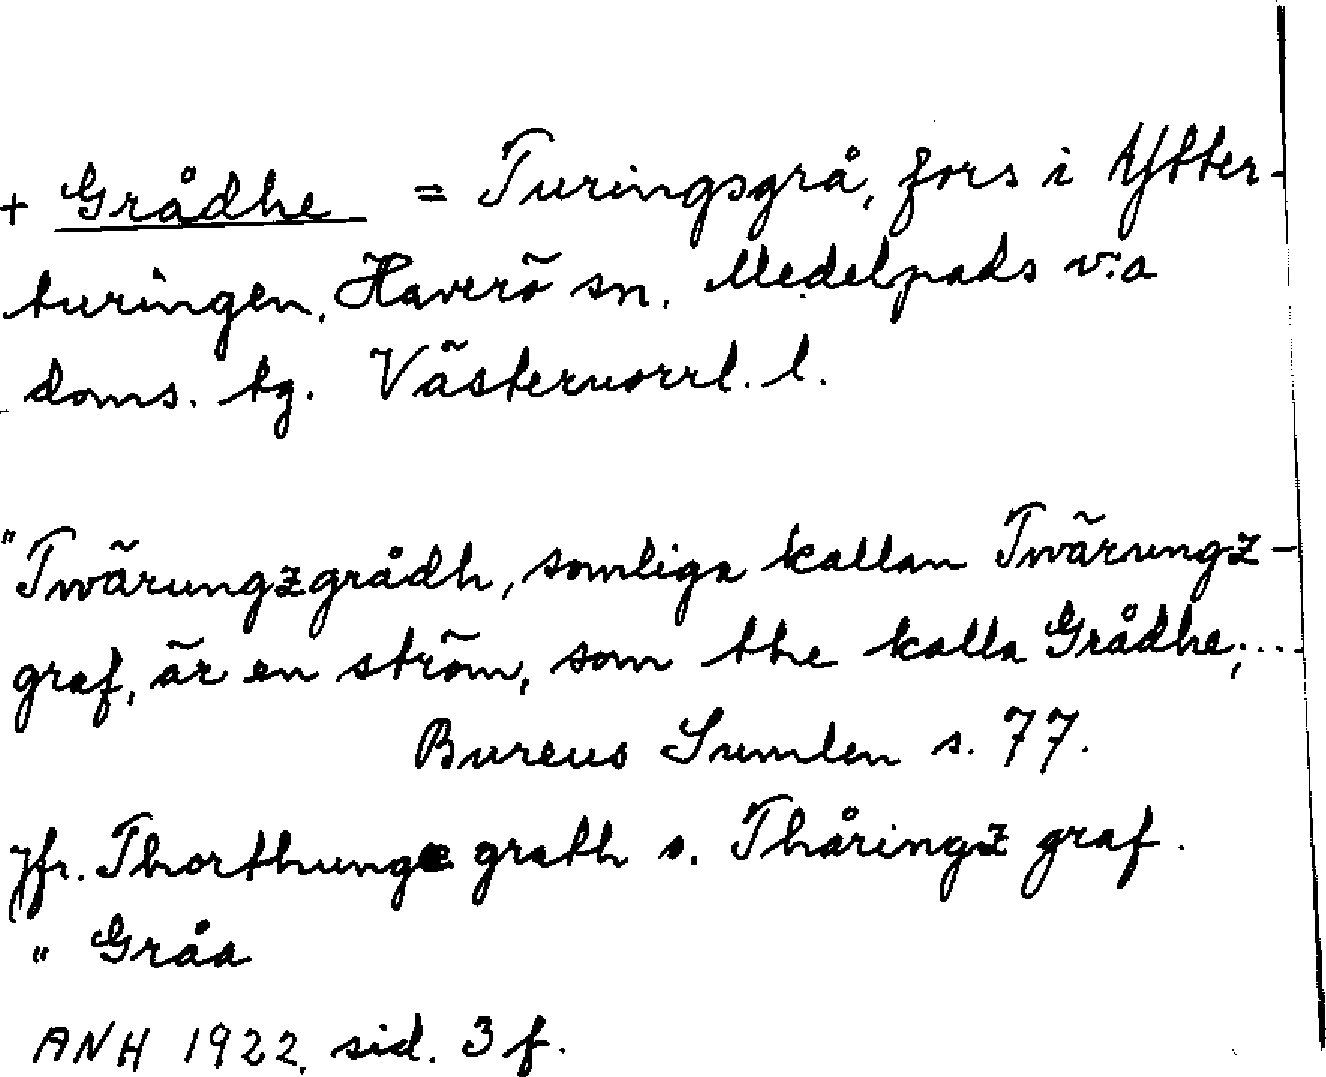 + Grådhe = Turingsgrå, fors i Ytter-
turingen, Haverö sn. Medelpads v:a
doms. tg. Västernorrl. l.
"Twärungzgrådh, somliga kallan Twärungz-
graf, är en ström, som the kalla Grådhe; ...
Bureus Sumlen s. 77.
Jfr. Thorthunge grath o. Thåringz graf.
" Gråa
ANH 1922, sid. 3 f.